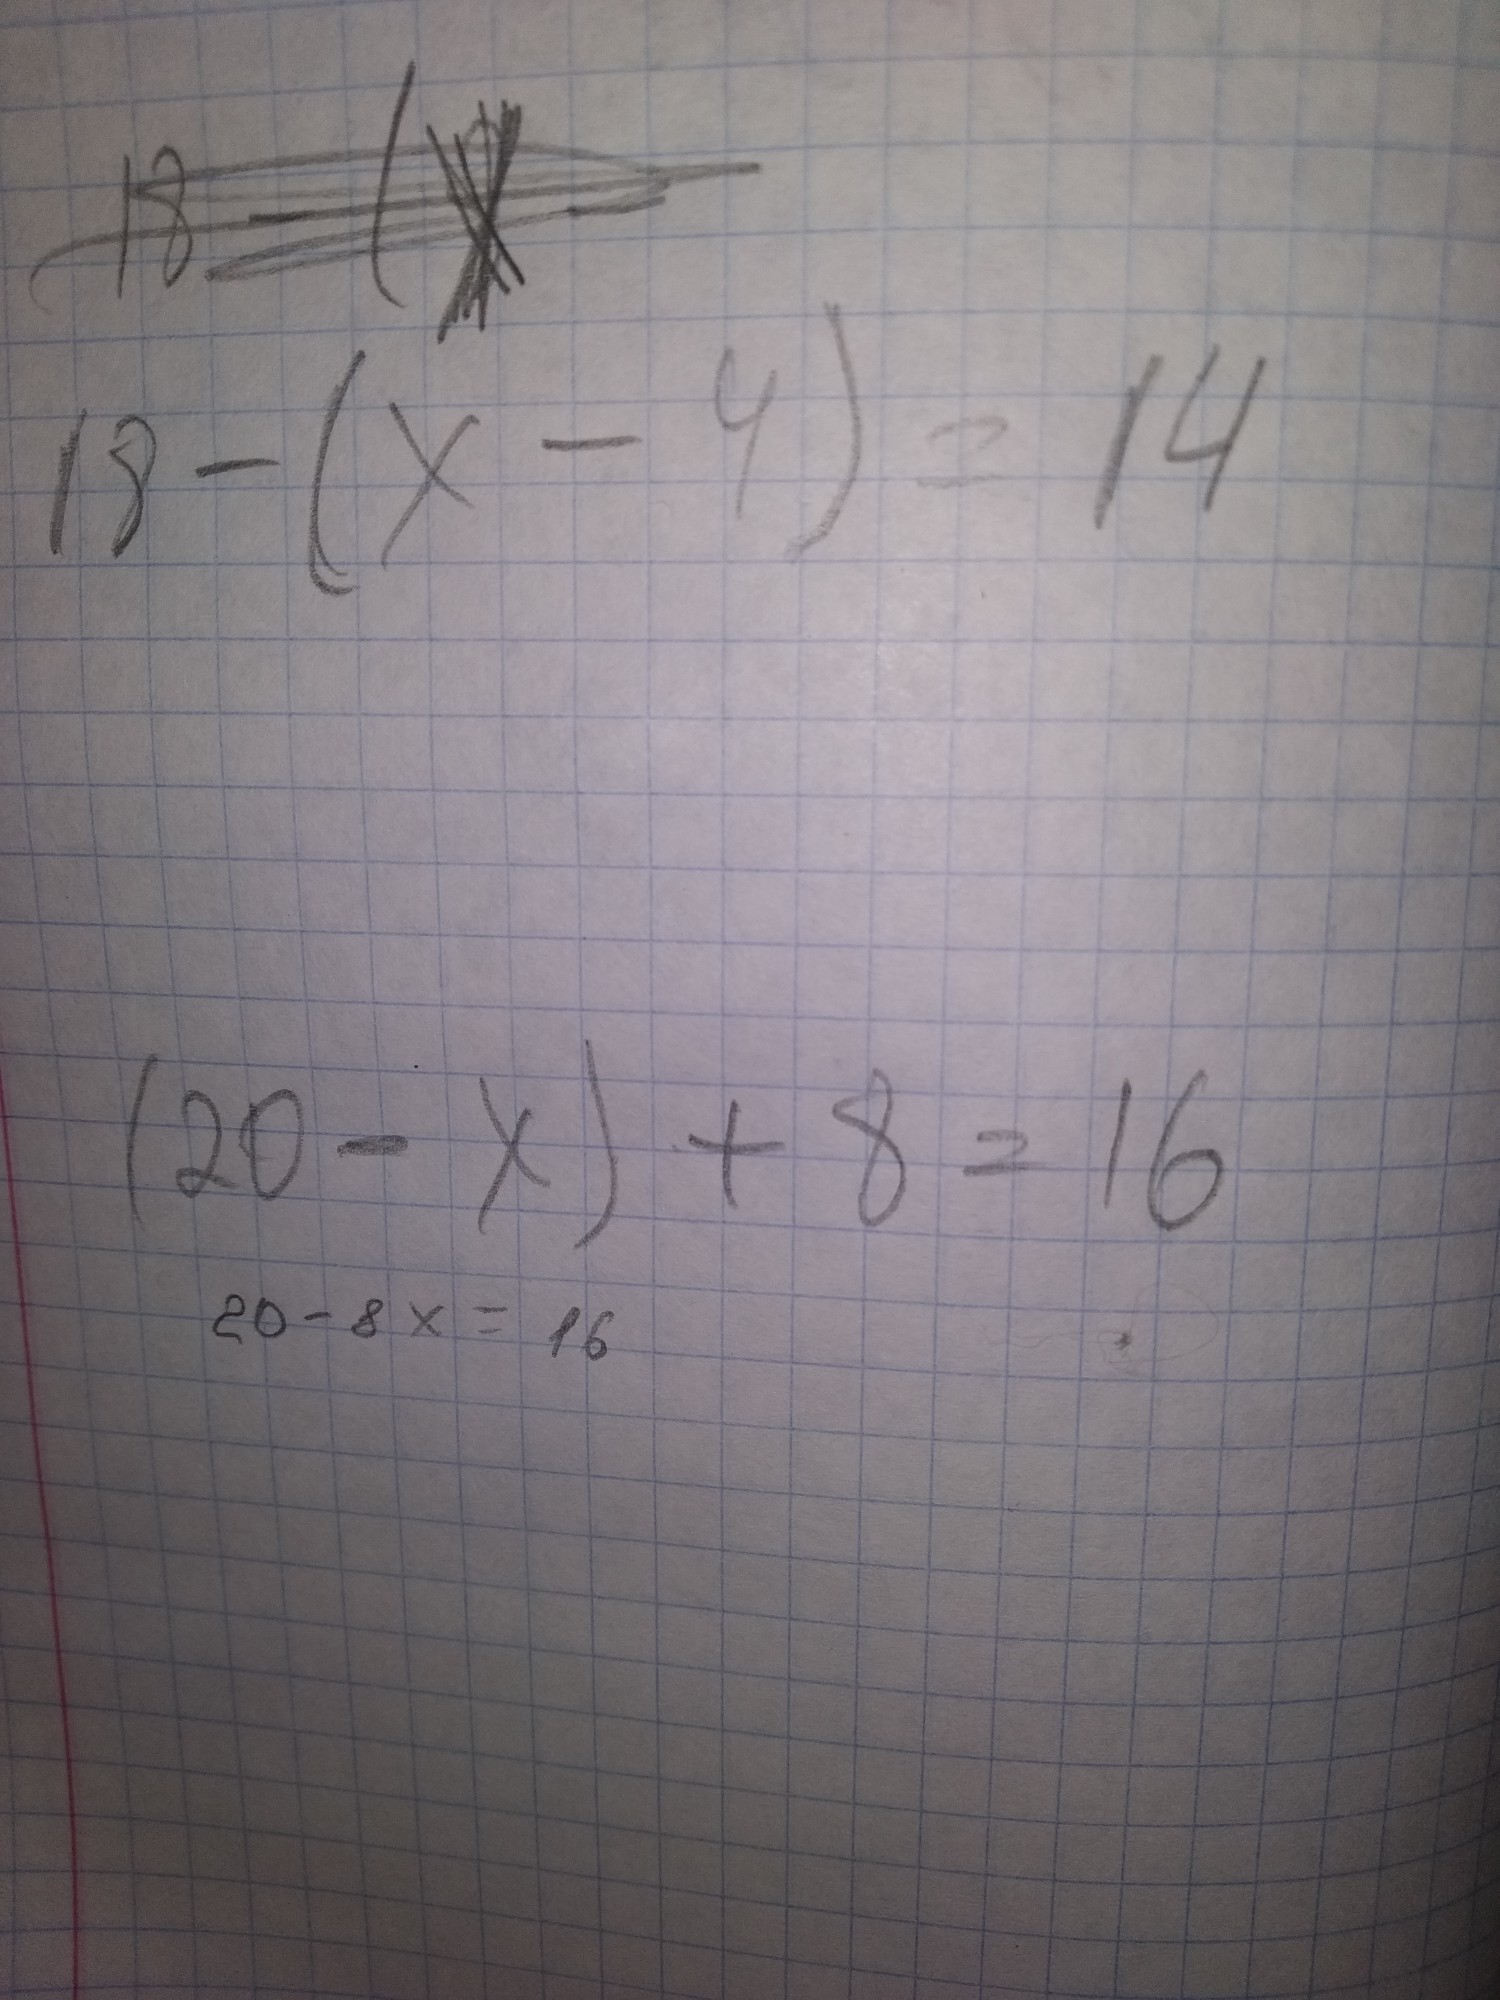 18 - (
18 - (x - 4) = 14
(20 - x) + 8 = 16
20 - 8x = 16